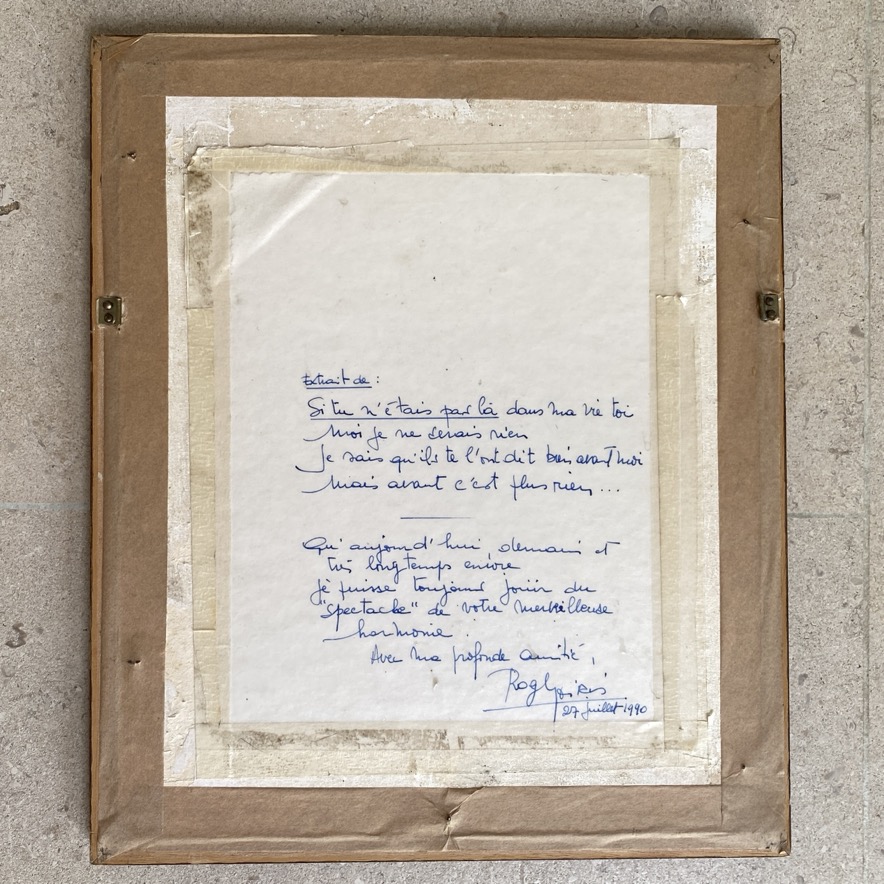 Extrait de :
Si tu n'étais par là dans ma vie toi
Moi je ne serais rien
Je sais qu'ils te l'ont dit bien avant moi
Mais avant c'est plus rien...
Qu'aujourd'hui, demain et
très longtemps encore
je puisse toujours jouir du
"spectacle" de votre merveilleuse
harmonie.
Avec ma profonde amitié,
27 Juillet 1990